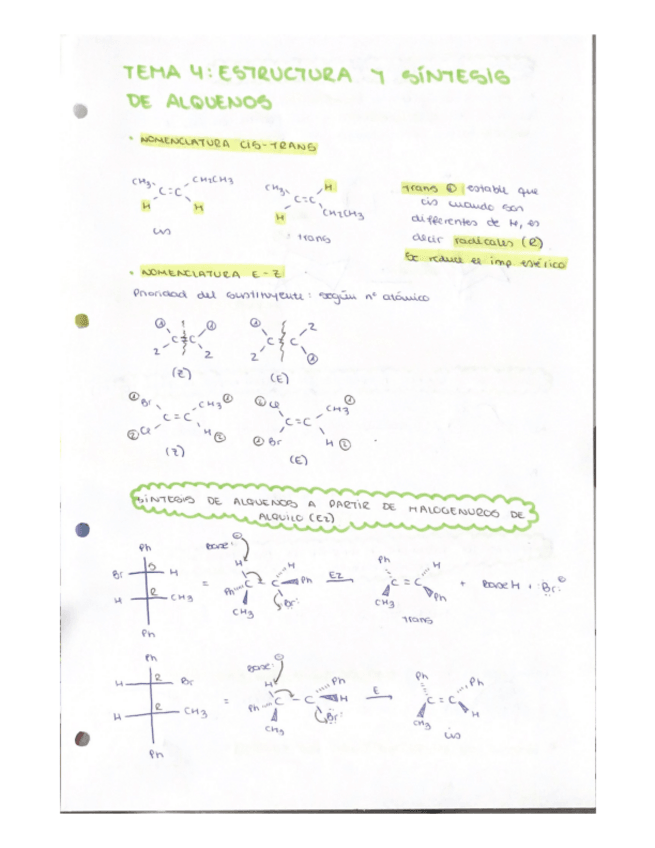 TEMA 4: ESTRUCTURA Y SÍNTESIS
DE ALQUENOS
• NOMENCLATURA CIS-TRANS
CH3 CH2CH3 CH3 H
C=C C=C
H H H CH2CH3
cis trans
trans ⊕ estable que
cis cuando son
diferentes de H, es
decir radicales (R)
Se reduce el imp. estérico
• NOMENCLATURA E-Z
Prioridad del sustituyente: según nº atómico
1 1 1 2
C=C C=C
2 2 2 1
(Z) (E)
1 Br CH3 1 2 Cl CH3 1
C=C C=C
2 Cl H 2 1 Br H 2
(Z) (E)
SÍNTESIS DE ALQUENOS A PARTIR DE HALOGENUROS DE
ALQUILO (E2)
Ph Base:⊖ H H Ph H
Br H = Ph C C Ph E2 C=C + BaseH + Br:⊖
H R CH3 CH3 Br: CH3 Ph
Ph trans
Ph Base:⊖ H Ph Ph Ph
H R Br = Ph C-C H E C=C
H R CH3 CH3 Br: CH3 H
Ph cis